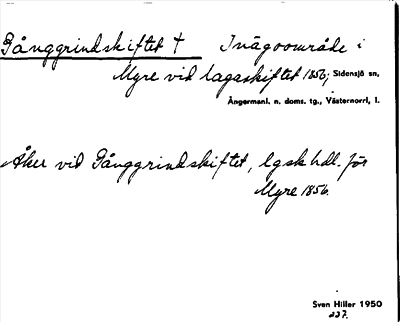 Gånggrindskiftet † Inägoområde i
Myre vid lagaskiftet 1856; Sidensjö sn,
Ångermanl. n. doms. tg., Västernorrl, l.
Åker vid Gånggrindskiftet, lgsk hdl. för
Myre 1856.
Sven Hiller 1950
227.